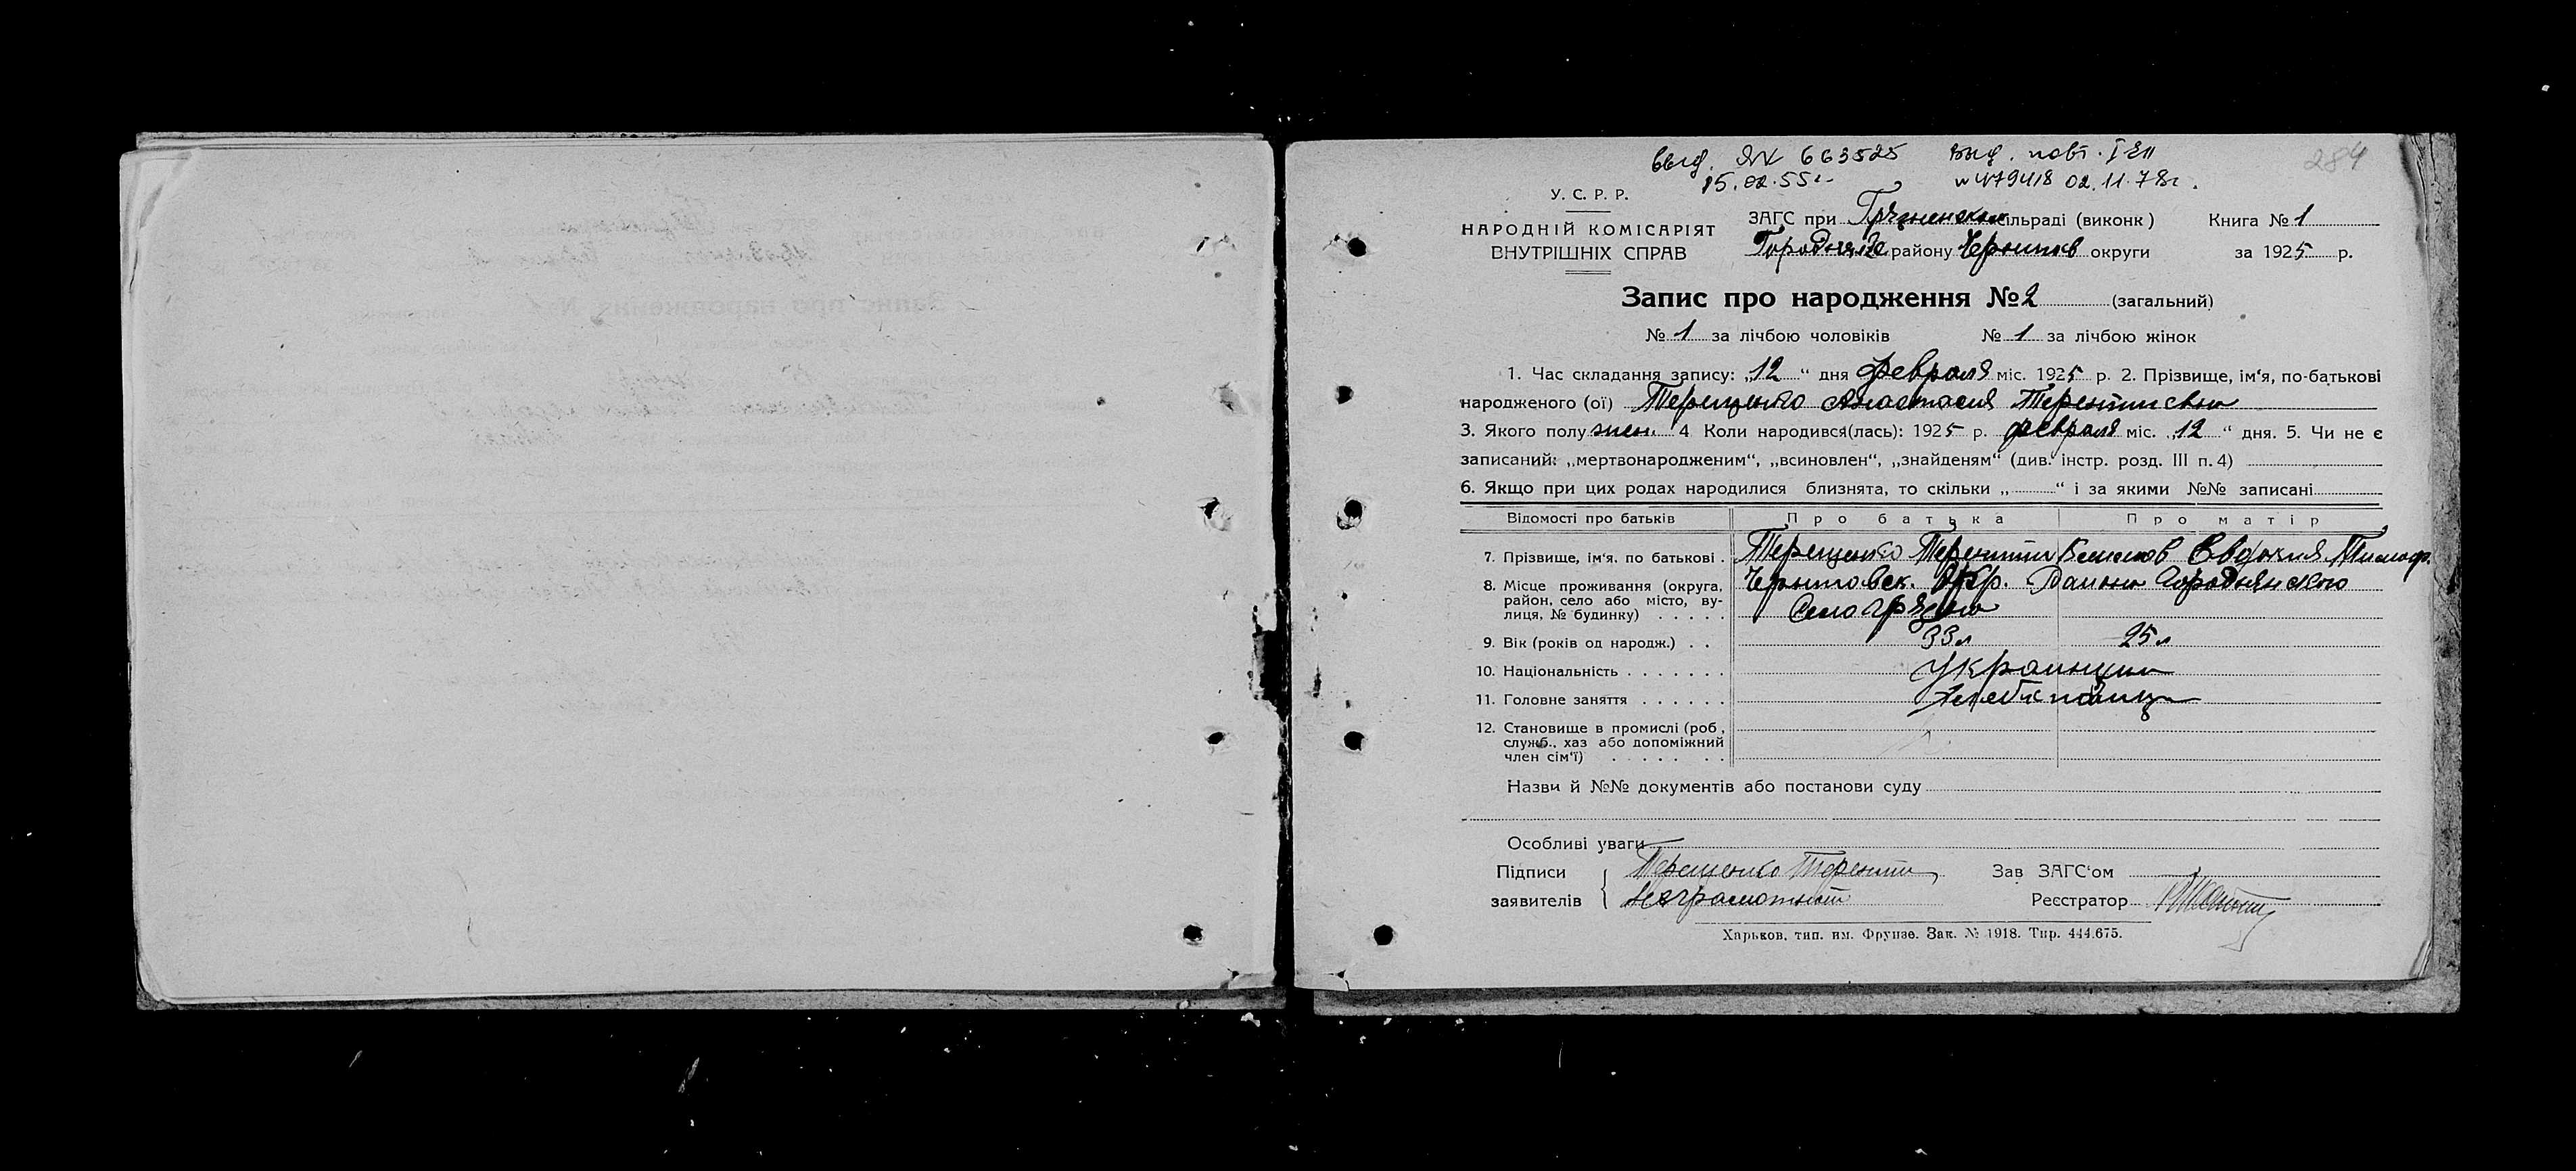 выд. ЯК 663525 Выд. повт. I ЕЛ 284
15.02.55г. № 479418 02.11.78г.
У. С. Р. Р.
НАРОДНІЙ КОМІСАРІЯТ ВНУТРІШНІХ СПРАВ
ЗАГС при сільраді (виконк) Книга № 1
району Чернигов округи за 1925 р.
Запис про народження № 2 (загальний)
№ 1 за лічбою чоловіків № 1 за лічбою жінок
1. Час складання запису: „12“ дня февраля міс. 1925 р. 2. Прізвище, ім‘я, по-батькові
народженого (ої) Терещенко Анастасия Терентиевна
3. Якого полу жен. 4 Коли народився(лась): 1925 р. февраля міс. „12“ дня. 5. Чи не є
записаний: „мертвонародженим“, „всиновлен“, „знайденям“ (див. інстр. розд. III п. 4)
6. Якщо при цих родах народилися близнята, то скільки „ “ і за якими №№ записані
Відомості про батьків Про батька Про матір
7. Прізвище, ім‘я, по батькові . Терещенко Терентий Евдокия
8. Місце проживання (округа, район, село або місто, вулиця, № будинку) . . . . . Черниговск. Окр. Района Городнянского
Село
9. Вік (років од народж.) . . 33 л 25 л
10. Національність . . . . . . . Украинцы
11. Головне заняття . . . . . . Хлебопашцы
12. Становище в промислі (роб, служб., хаз або допоміжний член сім‘ї) . . . . . . .
Назви й №№ документів або постанови суду
Особливі уваги
Підписи Терещенко Терентий Зав ЗАГС‘ом
заявителів неграмотный Реєстратор
Харьков, тип. им. Фрунзе. Зак. № 1918. Тир. 444.675.